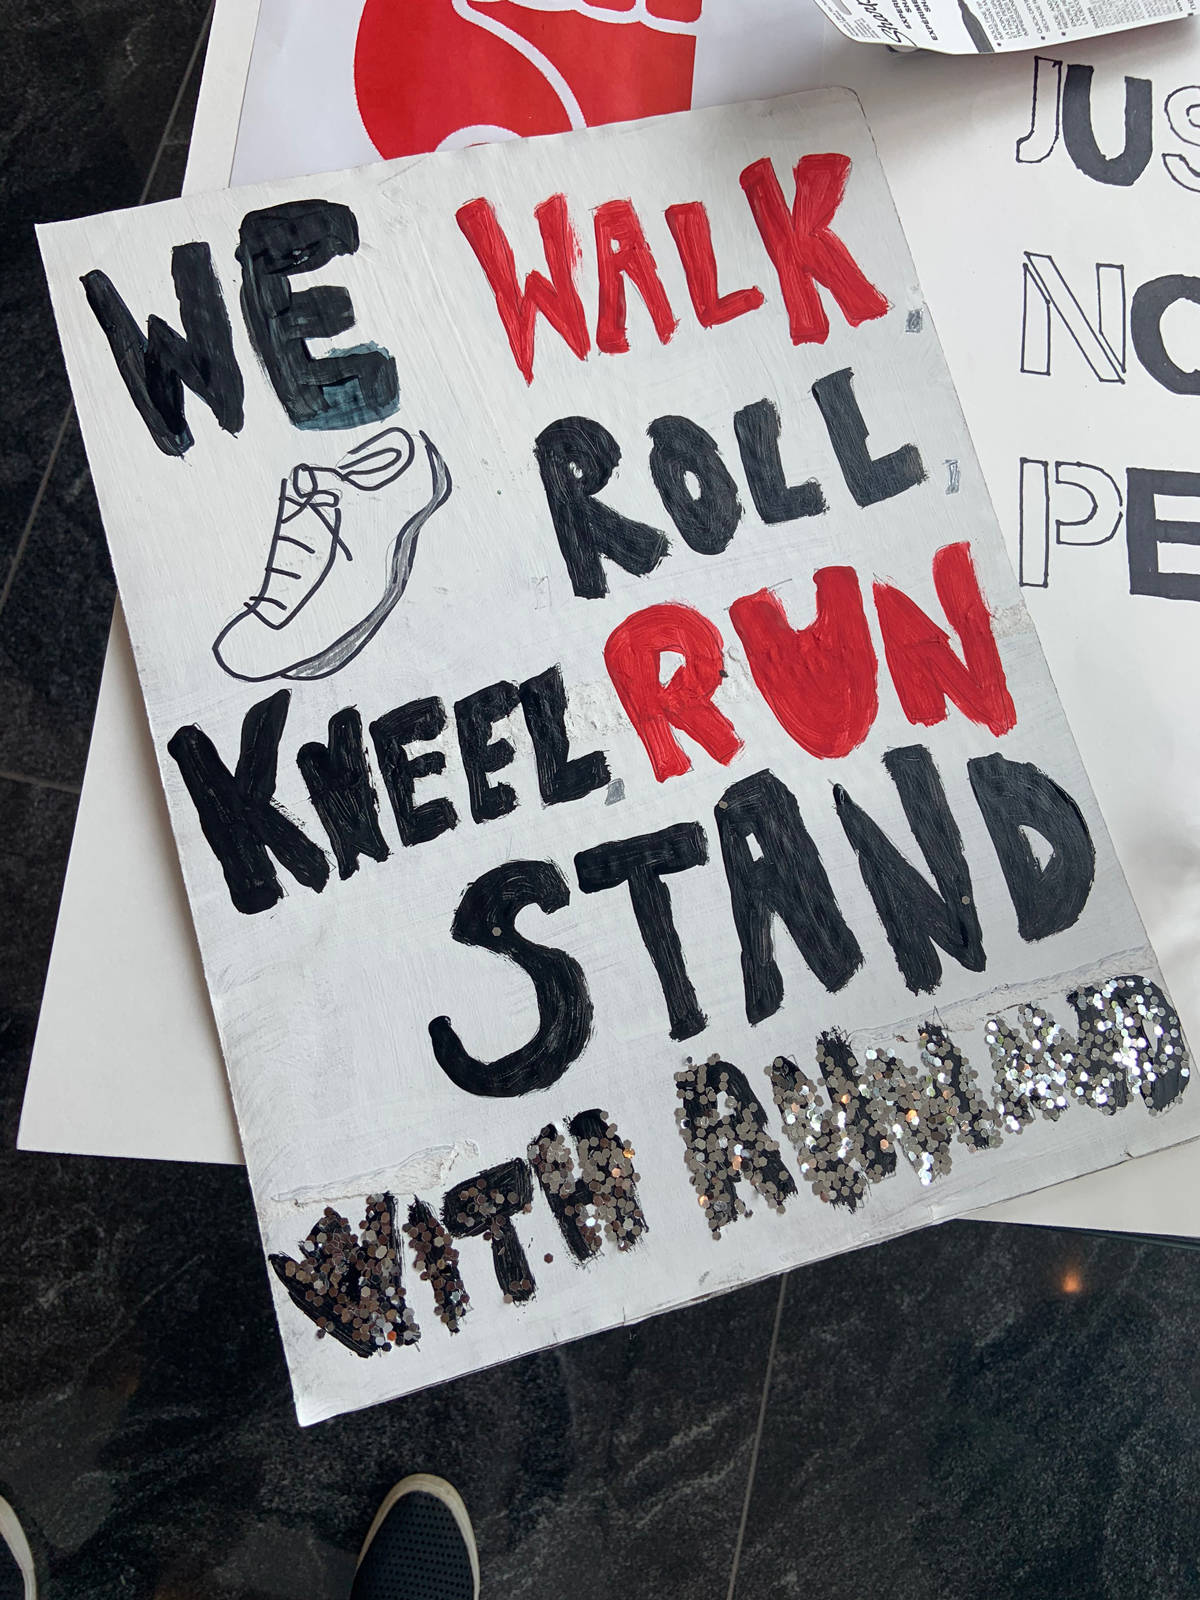 WE WALK,
ROLL,
KNEEL, RUN
STAND
WITH
JUS
NO
PE
Sharp